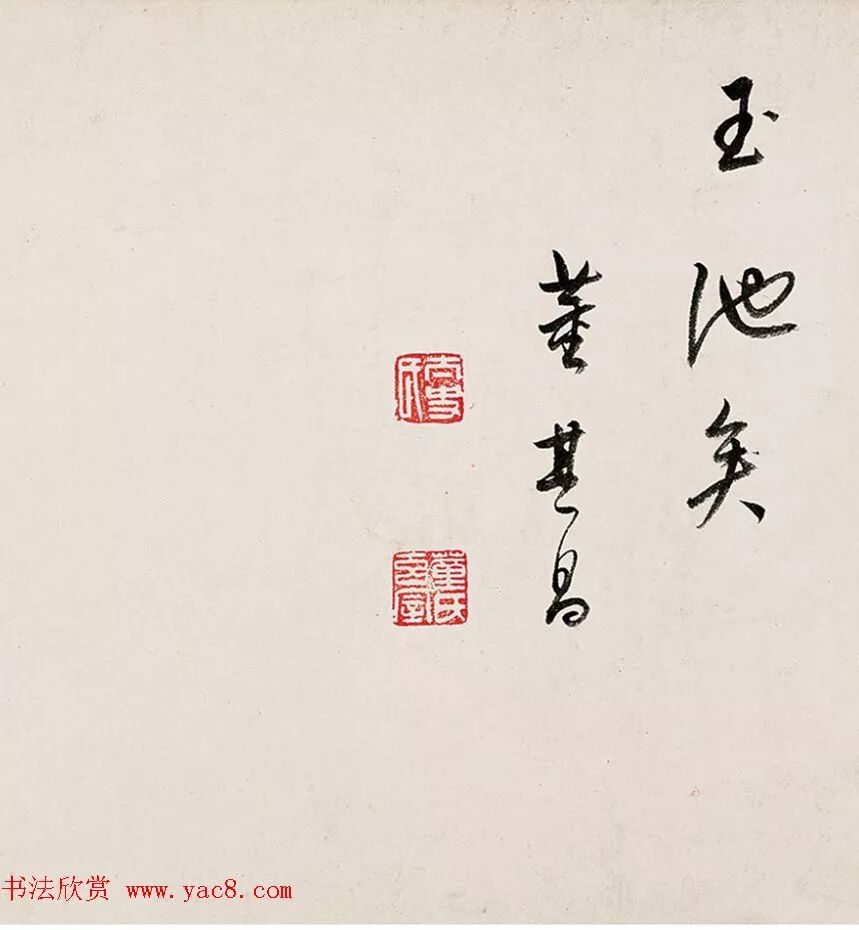 玉池矣
董其昌
董氏玄宰
书法欣赏 www.yac8.com